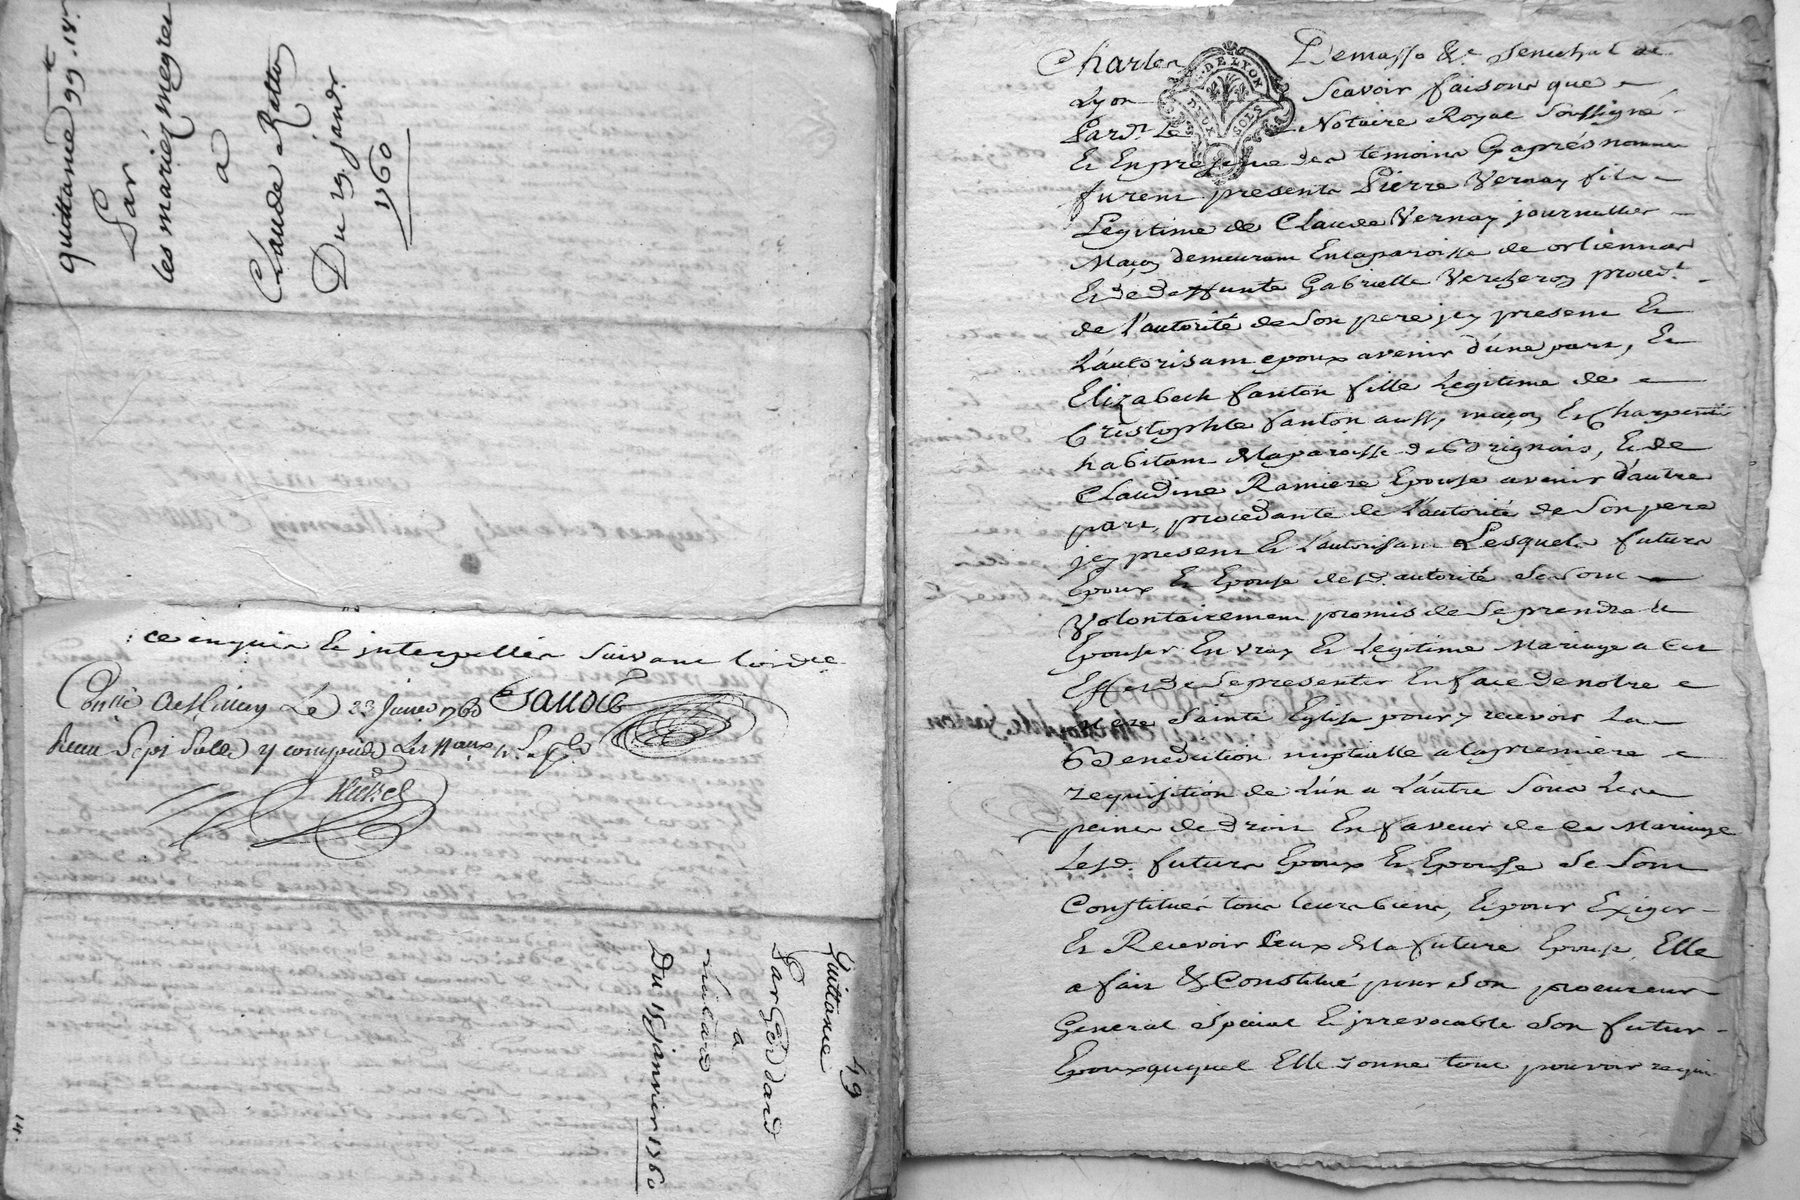 quittance 99.lt 18.s
Par
les mariez megret
a
Claude Ratton
Du 19. janvr.
1760
ce enquis et interpellés suivant l'ordce
Conllé a le 23 janer 1760 Gaudé
Receu Sept Sols y compris les
49
Quittance
Par Goddard
a
Du 15 janvier 1760
14.
Charles Demasso &c. Senechal de
Lyon Scavoir faisons que
Pardt. Le Notaire Royal Soussigné
Et En presence des temoins Cy après nommés
furent presents Pierre Vernay fils
Legitime de Claude Vernay journallier
Maçon demeurant En la paroisse de orliennas
Et de deffunte Gabrielle Vercheron procedt.
de l'autorité de Son pere jcy present Et
L'autorisant epoux avenir d'une part, Et
Elizabeth fanton fille Legitime de
Cristophle fanton aussy maçon Et Charpentier
habitant de la paroisse de Brignais, Et de
Claudine Ramiere Epouse avenir d'autre
part, procedante de L'autorité de Son pere
jcy present Et L'autorisant Lesquels futurs
Epoux Et Epouse desd. autorité Se Sont
Volontairement promis de Se prendre Et
Epouser En vray Et Legitime Mariage a Cet
Effet de Se presenter En face de notre
mere Sainte Eglise pour y recevoir La
Benediction nuptialle a la premiere
requisition de L'un a L'autre Sous Les
peines de droit En faveur de Ce Mariage
Lesd. futurs Epoux Et Epouse Se Sont
Constitués tous leurs biens, Et pour Exiger
Et Recevoir Ceux de La future Epouse, Elle
a fait & Constitué pour Son procureur
General Special Et jrrevocable Son futur
Epoux auquel Elle donne tout pouvoir requis
G. DE LYON
DEUX SOLS